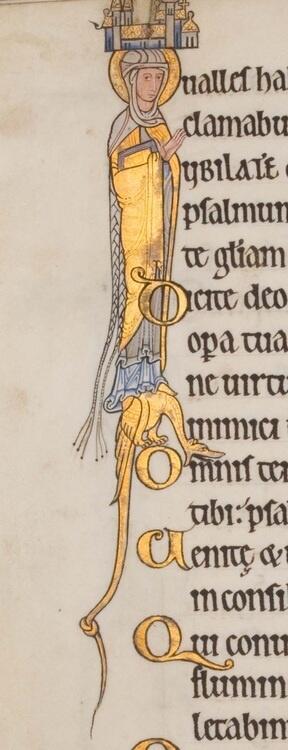 ualles ha
clamabu
VBILATE
psalmum
te gliam
Dicite deo
opa tua
ne uirtu
inimici
Omnis ter
tibi: psal
Uenite &
in consil
Qui conu
flumin
letabim